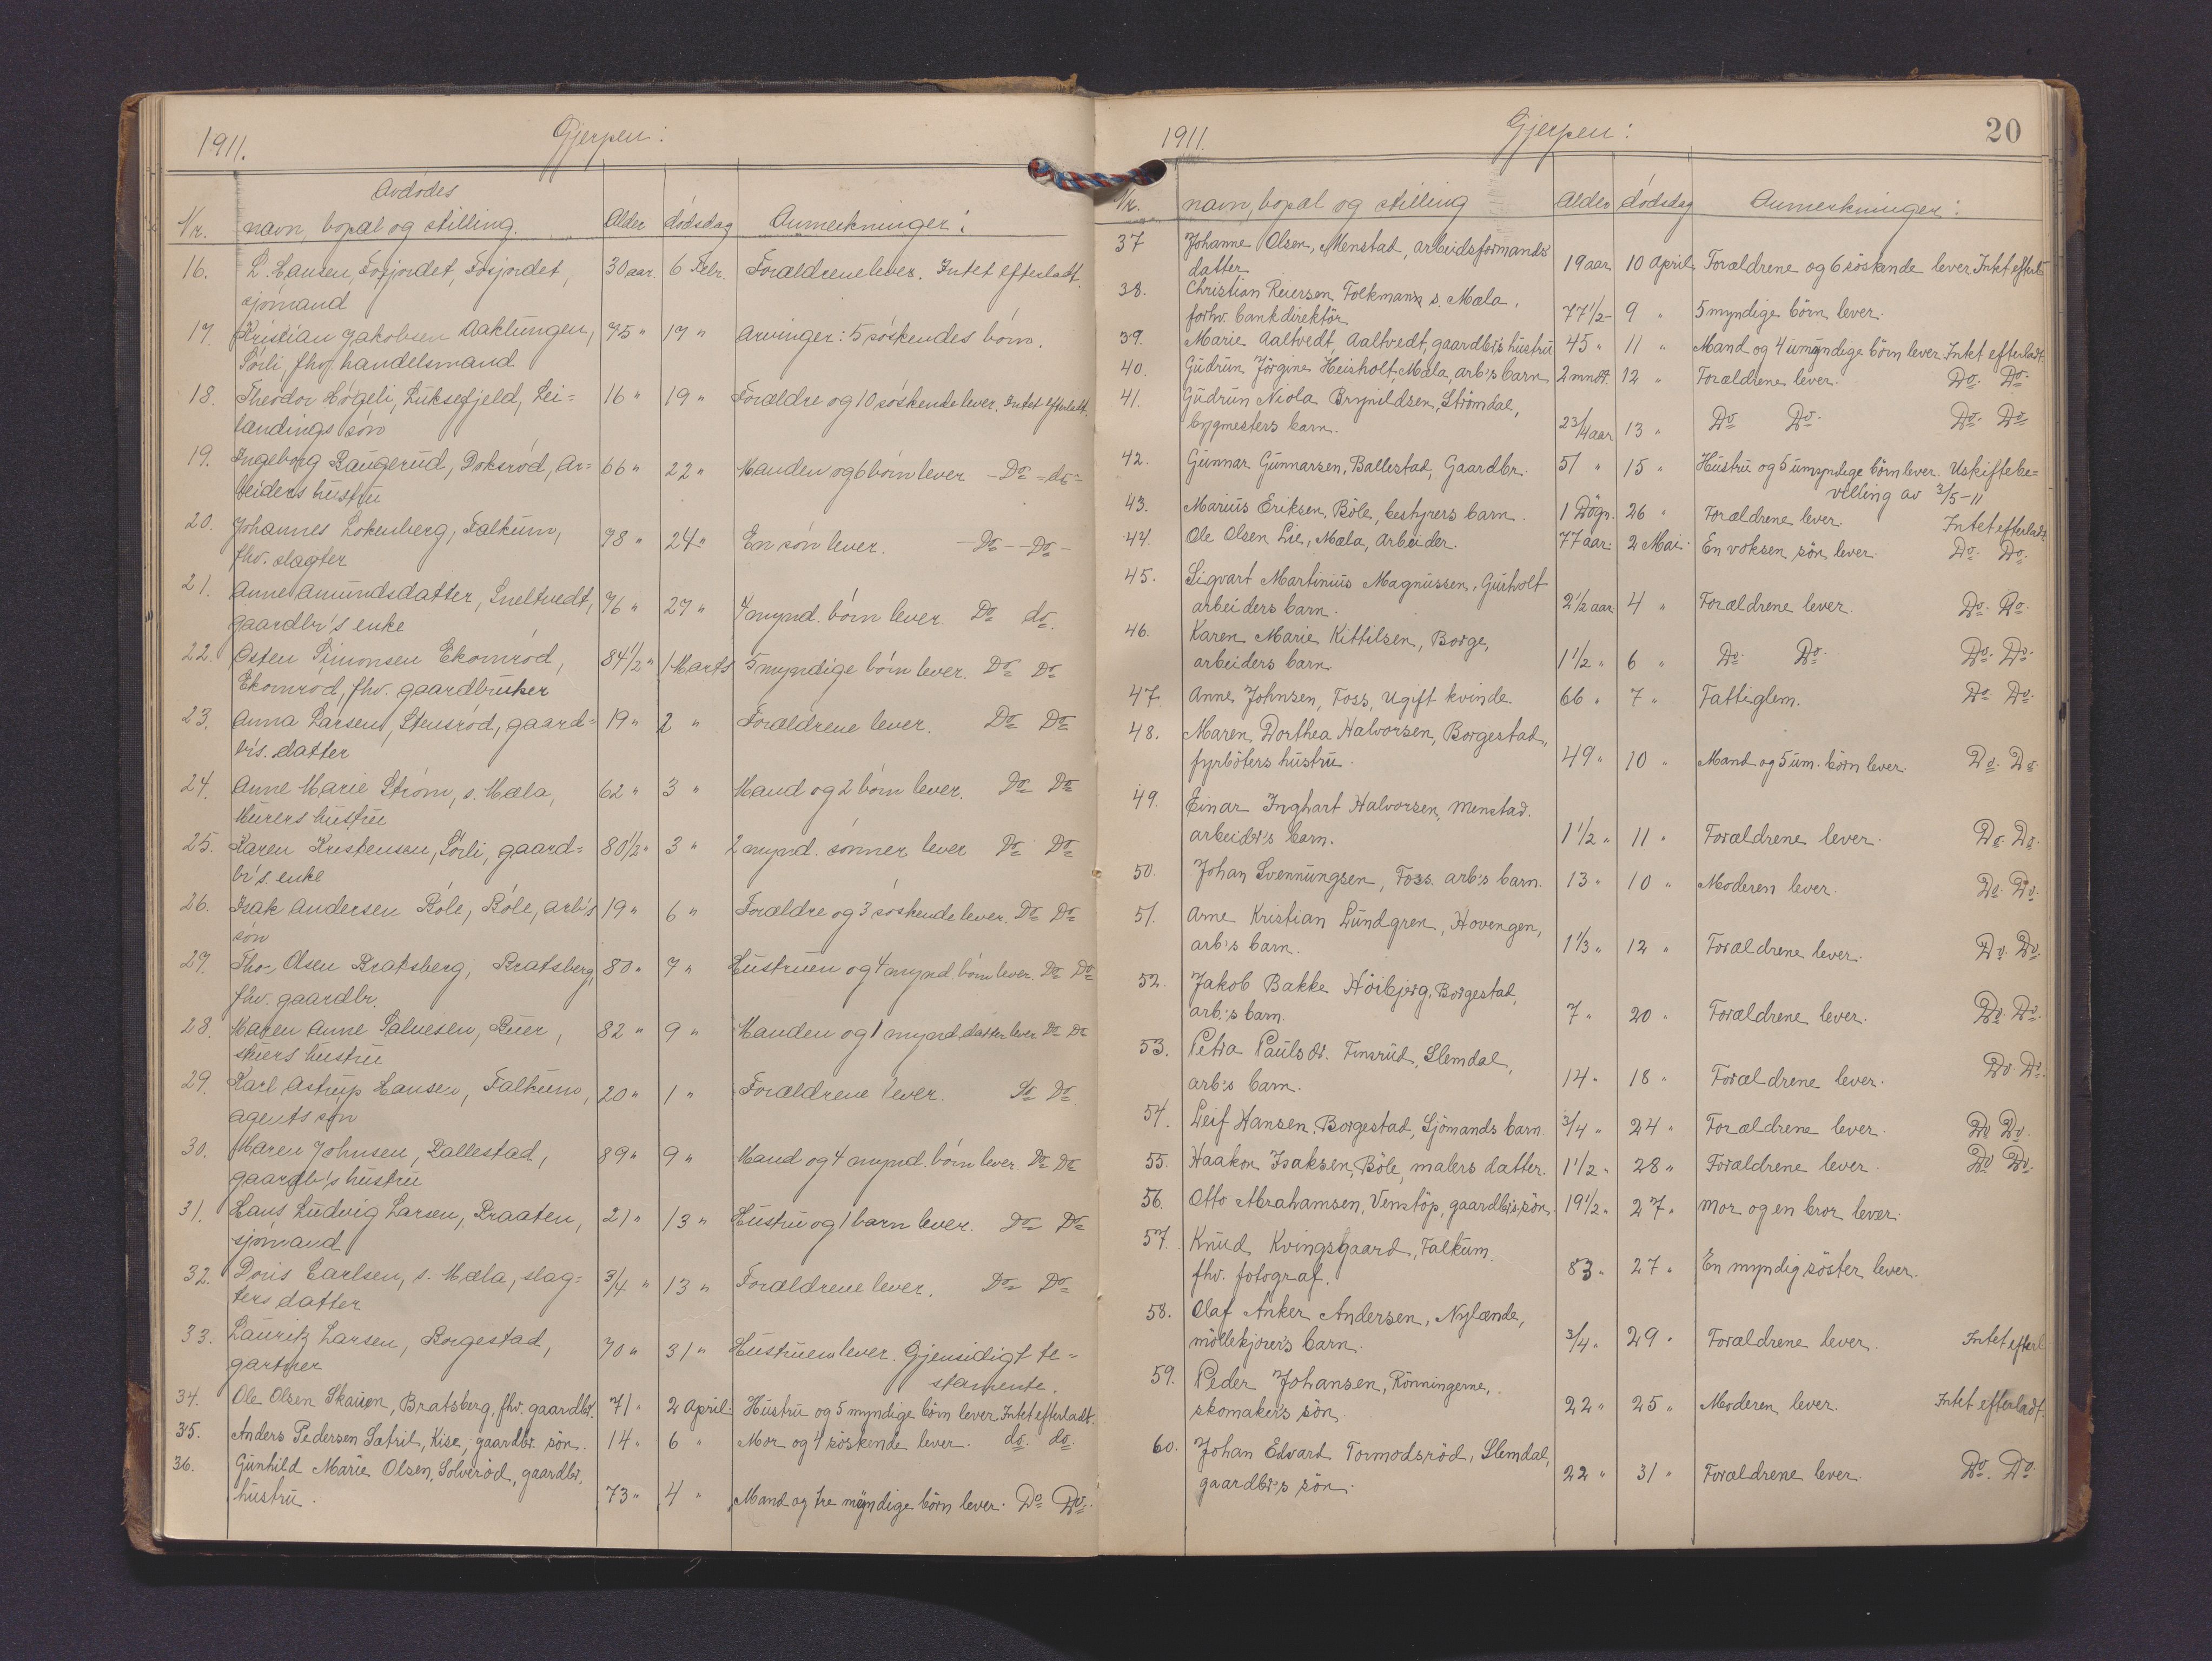 1911.
Gjerpen:
Avdødes
Nr. navn, bopæl og stilling. Alder dødsdag Anmerkninger:
16. L. Hansen, Fosjordet, Fosjordet, 30 aar. 6 Febr. Forældrene lever. Intet efterladt.
sjømand
17. Kristian Jakobsen Aaklungen, 75 " 17 " Arvinger: 5 søskendes børn.
Sørli, fhv. handelsmand
18. Theodor Høgeli, Luksefjeld, Lei= 16 " 19 " Forældre og 10 søskende lever. Intet efterladt.
landings søn
19. Ingeborg Raugerud, Doksrød, ar= 66 " 22 " Manden og 6 børn lever - Do - do -
beiders hustru
20. Johannes Lokenberg, Falkum, 78 " 24 " En søn lever. - Do - - Do -
fhv. slagter
21. Anne Amundsdatter, Sneltvedt, 76 " 27 " 4 mynd. børn lever. Do do.
gaardbr's enke
22. Østen Simonsen Ekornrød, 84 1/2 " 1 Marts 5 myndige børn lever. Do Do
Ekornrød, fhv. gaardbruker
23. Anna Larsen, Stensrød, gaard= 19 " 2 " Forældrene lever. Do Do
br's. datter
24. Anne Marie Strøm, s. Mæla, 62 " 3 " Mand og 2 børn lever. Do Do
Murers hustru
25. Karen Kristensen, Sørli, gaard= 80 1/2 " 3 " 2 mynd. sønner lever Do Do
br's. enke
26. Isak Andersen Bøle, Bøle, arb's 19 " 6 " Forældre og 3 søskende lever. Do Do
søn
27. Tho- Olsen Bratsberg, Bratsberg, 80 " 7 " Hustruen og 4 mynd. børn lever. Do Do
fhv. gaardbr.
28. Maren Anne Salvesen, Buer, 82 " 9 " Manden og 1 mynd. datter lever Do Do
skiers hustru
29. Karl Astrup Hansen, Falkum, 20 " 1 " Forældrene lever. Do Do
agents søn
30. Maren Johnsen, Ballestad, 89 " 9 " Mand og 4 mynd. børn lever. Do Do
gaardb's hustru
31. Hans Ludvig Larsen, Braaten, 21 " 13 " Hustru og 1 barn lever. Do Do
sjømand
32. Doris Carlsen, s. Mæla, slag= 3/4 " 13 " Forældrene lever. Do Do
ters datter
33. Lauritz Larsen, Borgestad, 70 " 31 " Hustruen lever. Gjensidigt te=
gartner stamente.
34. Ole Olsen Skauen, Bratsberg, fhv. gaardbr. 71 " 2 April. Hustru og 5 myndige børn lever Intet efterladt.
35. Anders Pedersen Satril, Kise, gaardbr. søn. 14 " 6 " Mor og 4 søskende lever. do. do.
36. Gunhild Marie Olsen, Solverød, gaardbr.
hustru. 73 " 4 " Mand og tre myndige børn lever. Do Do.
1911.
Gjerpen:
20
Nr. navn, bopæl og stilling Alder dødsdag Anmerkninger:
37 Johanne Olsen, Menstad, arbeidsformands
datter. 19 aar 10 April Forældrene og 6 söskende lever Intet efterl
38. Christian Reiersen Folkmann s. Mæla,
forhv. bankdirektör 77 1/2 - 9 " 5 myndige börn lever.
39. Marie Aaltvedt, Aaltvedt, gaardbr's hustru 45 " 11 " Mand og 4 umyndige börn lever Intet efterladt.
40. Gudrun Jörgine Heisholt, Mæla, arb's barn 2 mndr. 12 " Forældrene lever. Do. Do.
41. Gudrun Niola Brynildsen, Strömdal,
bygmesters barn. 2 3/4 aar 13 " Do Do. Do. Do
42. Gunnar Gunnarsen, Ballestad, Gaardbr. 51 " 15 " Hustru og 5 umyndige börn lever. Uskiftebe=
villing av 3/5-11
43. Marius Eriksen, Böle, bestyrers barn. 1 Dögn. 26 " Forældrene lever. Intet efterladt.
44. Ole Olsen Lie, Mæla, Arbeider. 77 aar. 2 Mai. En voksen sön lever. Do. Do.
45. Sigvart Martinius Magnussen, Gusholt
arbeiders barn. 2 1/2 aar 4 " Forældrene lever. Do. Do.
46. Karen Marie Kittilsen, Borge,
arbeiders barn. 1 1/2 " 6 " Do. Do. Do. Do.
47. Anne Johnsen, Foss, Ugift kvinde. 66 " 7 " Fattiglem. Do. Do.
48. Maren Dorthea Halvorsen, Borgestad,
fyrböters hustru. 49 " 10 " Mand og 5 um. börn lever. Do. Do.
49. Einar Inghart Halvorsen, Menstad.
arbeider's barn. 1 1/2 " 11 " Forældrene lever. Do. Do.
50. Johan Svennungsen, Foss. arb's barn. 13 " 10 " Moderen lever. Do. Do.
51. Arne Kristian Lundgren, Hovengen,
arb's barn. 1 1/3 " 12 " Forældrene lever. Do. Do.
52. Jakob Bakke Höibjerg, Borgestad,
arb.'s barn. 7 " 20 " Forældrene lever. Do. Do.
53. Petra Pauls dr. Finsrud, Slemdal,
arb's barn. 14 " 18 " Forældrene lever. Do. Do.
54. Leif Hansen, Borgestad, Sjömands barn. 3/4 " 24 " Forældrene lever. Do Do.
55. Haakon Isaksen, Böle, malers datter. 1 1/2 " 28 " Forældrene lever. Do Do.
56. Otto Abrahamsen, Venstöp, gaardbr's sön. 19 1/2 " 27 " Mor og en bror lever.
57. Knud Kvingsgaard, Falkum.
fhv. fotograf. 83 " 27 " En myndig söster lever.
58. Olaf Anker Andersen, Nylænde,
möllekjörer's barn. 3/4 " 29 " Forældrene lever. Intet efterl
59. Peder Johansen, Rönningerne,
skomaker's sön. 22 " 25 " Moderen lever. Intet efterladt.
60. Johan Edvard Tormodsröd, Slemdal,
gaardbr's sön. 22 " 31 " Forældrene lever. Do. Do.